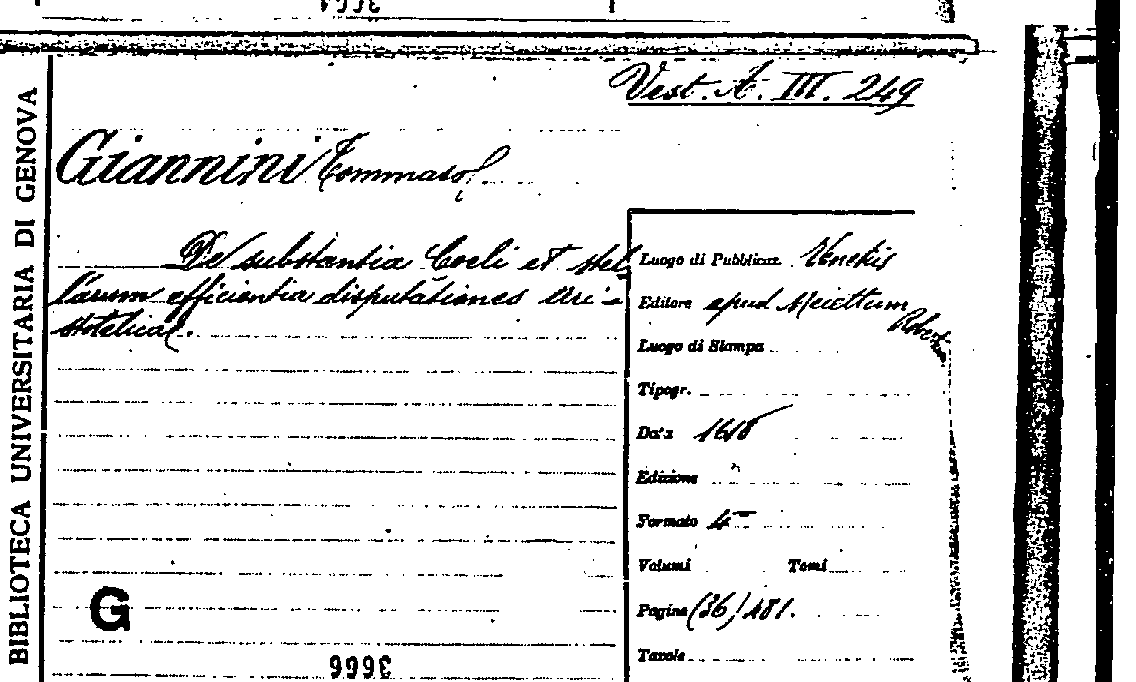 Vest. A. III. 249
Giannini Tommaso
De substantia Coeli et stel
larum efficientia disputationes Ari-
stotelicae.
Luogo di Pubblicaz. Venetiis
Editore apud Meiettum
Luogo di Stampa
Tipogr.
Data 1618
Edizione
Formato 4°
Volumi Tomi
Pagine (36) 181.
Tavole
BIBLIOTECA UNIVERSITARIA DI GENOVA
G
3666